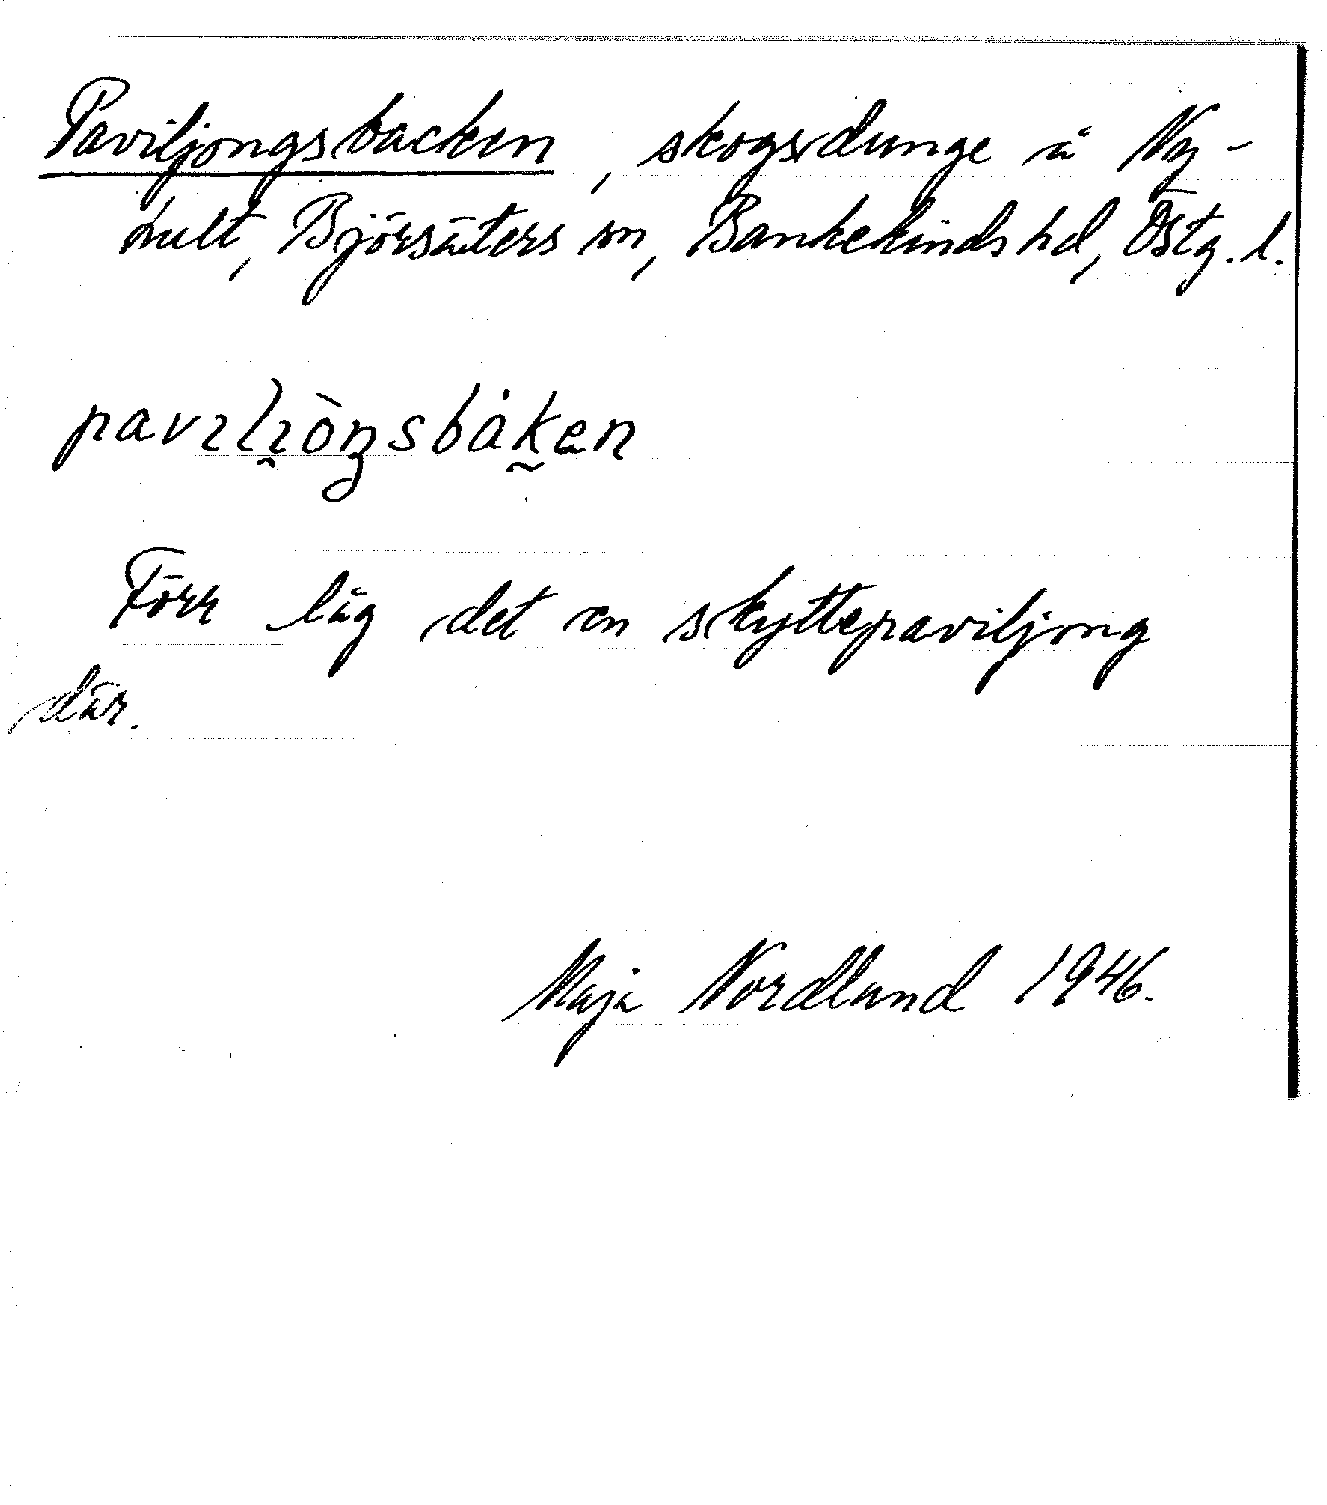 Paviljongsbacken, skogsdunge å Ny-
hult, Björsäters sn, Bankekinds hd, Östg. l.
pavılı̯òŋsbåk̰en
Förr låg det en skyttepaviljong
där.
Maja Nordlund 1946.